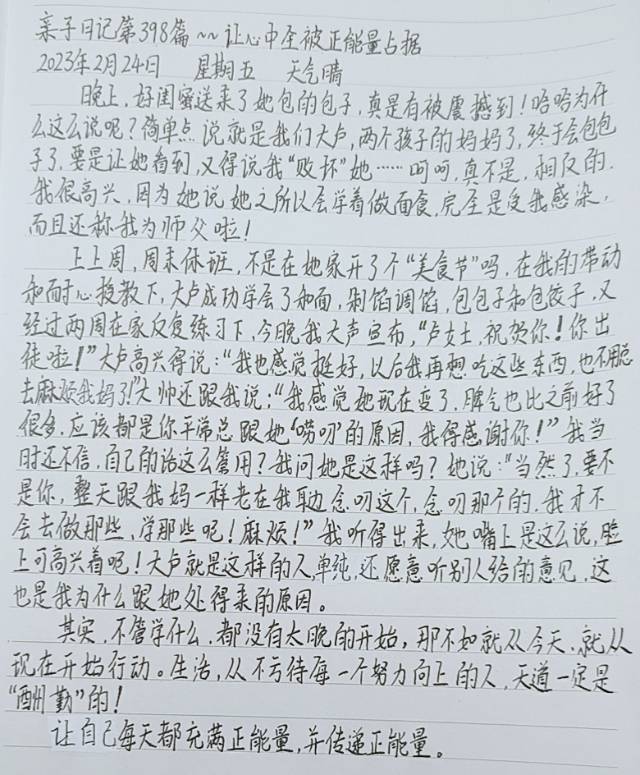 亲子日记第398篇~~让心中全被正能量占据
2023年2月24日 星期五 天气晴
晚上,好闺蜜送来了她包的包子,真是有被震撼到!哈哈为什
么这么说呢?简单点说就是我们大卢,两个孩子的妈妈了,终于会包包
子了,要是让她看到,又得说我“败坏”她……呵呵,真不是,相反的.
我很高兴,因为她说她之所以会学着做面食,完全是受我感染,
而且还称我为师父啦!
上上周,周末休班,不是在她家开了个“美食节”吗,在我的带动
和耐心教教下,大卢成功学会了和面,剁馅调馅,包包子和包饺子,又
经过两周在家反复练习下,今晚我大声宣布,“卢女士,祝贺你!你出
徒啦!”大卢高兴得说:“我也感觉挺好,以后我再想吃这些东西,也不用总
去麻烦我妈了!”大帅还跟我说:“我感觉她现在变了,脾气也比之前好了
很多,应该都是你平常总跟她‘唠叨’的原因,我得感谢你!”我当
时还不信,自己的话这么管用?我问她是这样吗?她说:“当然了,要不
是你,整天跟我妈一样老在我耳边念叨这个,念叨那个的,我才不
会去做那些,学那些呢!麻烦!”我听得出来,她嘴上是这么说,脸
上可高兴着呢!大卢就是这样的人,单纯,还愿意听别人给的意见,这
也是我为什么跟她处得来的原因。
其实,不管学什么,都没有太晚的开始,那不如就从今天、就从
现在开始行动。生活,从不亏待每一个努力向上的人,天道一定是
“酬勤”的!
让自己每天都充满正能量,并传递正能量。